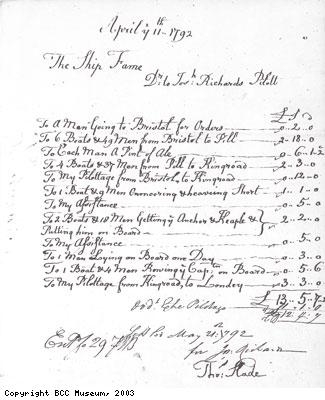 April ye 11th 1792
The Ship Fame
Dr. to Josh. Richards Pilott
£ s D
To A Man Going to Bristol for Orders 0..2..0
To 6 Boats & 49 Men from Bristol to Pill 2..18..0
To Each Man A Pint of Ale 0..6..1½
To 4 Boats & 37 Men from Pill to Kingroad 2..3..0
To My Pilottage from Bristol to Kingroad 0..12..0
To 1 Boat & 9 Men Onmooring & heaveing Short 1..1..0
To My Assistance 0..5..0
To 2 Boats & 18 Men Getting ye Anchor & Keaple & 2..2..0
Putting him on Board
To My Assistance 0..5..0
To 1 Man Lying on Board one Day 0..3..0
To 1 Boat & 4 Men Rowing ye Capt. on Board 0..5..6
To My Pilottage from Kingroad to Lundey 3..3..0
£ 13..5..7½
The Pilotage
May 21st 1792
for Jos. Richards
Thos. Slade
Copyright BCC Museum, 2003